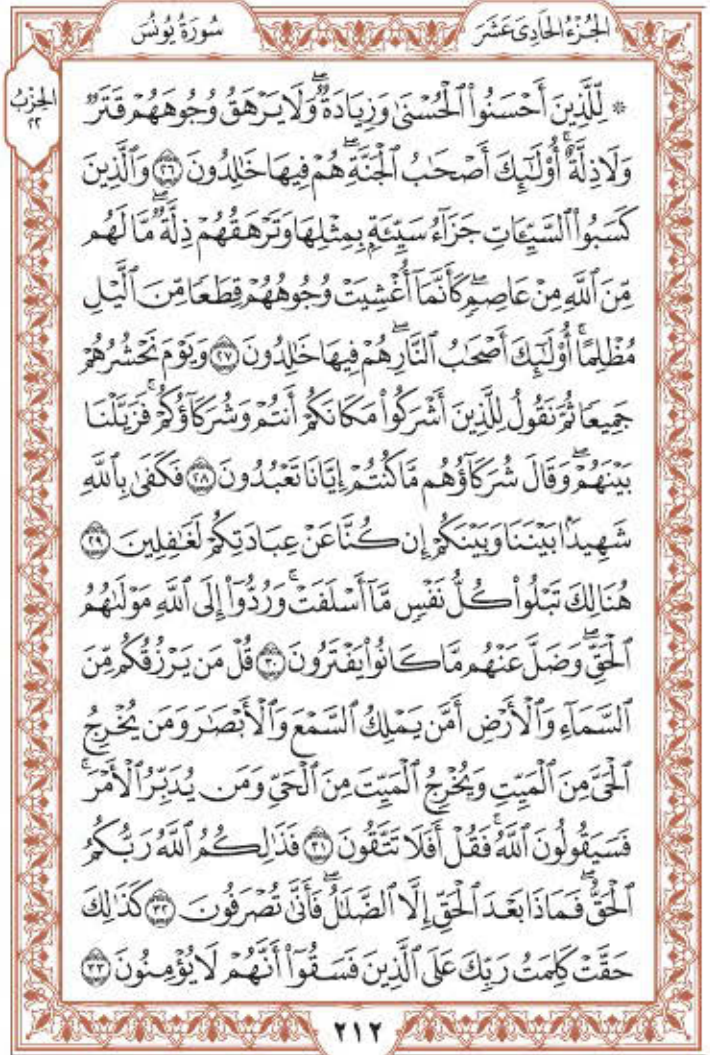 سُورَةُ يُونُسَ
الجُزْءُ الحَادِىَ عَشَرَ
الحِزْبُ
٢٢
۞ لِّلَّذِينَ أَحْسَنُواْ ٱلْحُسْنَىٰ وَزِيَادَةٌۖ وَلَا يَرْهَقُ وُجُوهَهُمْ قَتَرٌ
وَلَا ذِلَّةٌۚ أُوْلَٰٓئِكَ أَصْحَٰبُ ٱلْجَنَّةِۖ هُمْ فِيهَا خَٰلِدُونَ ٢٦ وَٱلَّذِينَ
كَسَبُواْ ٱلسَّيِّـَٔاتِ جَزَآءُ سَيِّئَةِۭ بِمِثْلِهَا وَتَرْهَقُهُمْ ذِلَّةٌۖ مَّا لَهُم
مِّنَ ٱللَّهِ مِنْ عَاصِمٍۖ كَأَنَّمَآ أُغْشِيَتْ وُجُوهُهُمْ قِطَعًا مِّنَ ٱلَّيْلِ
مُظْلِمًاۚ أُوْلَٰٓئِكَ أَصْحَٰبُ ٱلنَّارِۖ هُمْ فِيهَا خَٰلِدُونَ ٢٧ وَيَوْمَ نَحْشُرُهُمْ
جَمِيعًا ثُمَّ نَقُولُ لِلَّذِينَ أَشْرَكُواْ مَكَانَكُمْ أَنتُمْ وَشُرَكَآؤُكُمْۚ فَزَيَّلْنَا
بَيْنَهُمْۖ وَقَالَ شُرَكَآؤُهُم مَّا كُنتُمْ إِيَّانَا تَعْبُدُونَ ٢٨ فَكَفَىٰ بِٱللَّهِ
شَهِيدًۢا بَيْنَنَا وَبَيْنَكُمْ إِن كُنَّا عَنْ عِبَادَتِكُمْ لَغَٰفِلِينَ ٢٩
هُنَالِكَ تَبْلُواْ كُلُّ نَفْسٍ مَّآ أَسْلَفَتْۚ وَرُدُّوٓاْ إِلَى ٱللَّهِ مَوْلَىٰهُمُ
ٱلْحَقِّۖ وَضَلَّ عَنْهُم مَّا كَانُواْ يَفْتَرُونَ ٣٠ قُلْ مَن يَرْزُقُكُم مِّنَ
ٱلسَّمَآءِ وَٱلْأَرْضِ أَمَّن يَمْلِكُ ٱلسَّمْعَ وَٱلْأَبْصَٰرَ وَمَن يُخْرِجُ
ٱلْحَىَّ مِنَ ٱلْمَيِّتِ وَيُخْرِجُ ٱلْمَيِّتَ مِنَ ٱلْحَىِّ وَمَن يُدَبِّرُ ٱلْأَمْرَۚ
فَسَيَقُولُونَ ٱللَّهُۚ فَقُلْ أَفَلَا تَتَّقُونَ ٣١ فَذَٰلِكُمُ ٱللَّهُ رَبُّكُمُ
ٱلْحَقُّۖ فَمَاذَا بَعْدَ ٱلْحَقِّ إِلَّا ٱلضَّلَٰلُۖ فَأَنَّىٰ تُصْرَفُونَ ٣٢ كَذَٰلِكَ
حَقَّتْ كَلِمَتُ رَبِّكَ عَلَى ٱلَّذِينَ فَسَقُوٓاْ أَنَّهُمْ لَا يُؤْمِنُونَ ٣٣
٢١٢